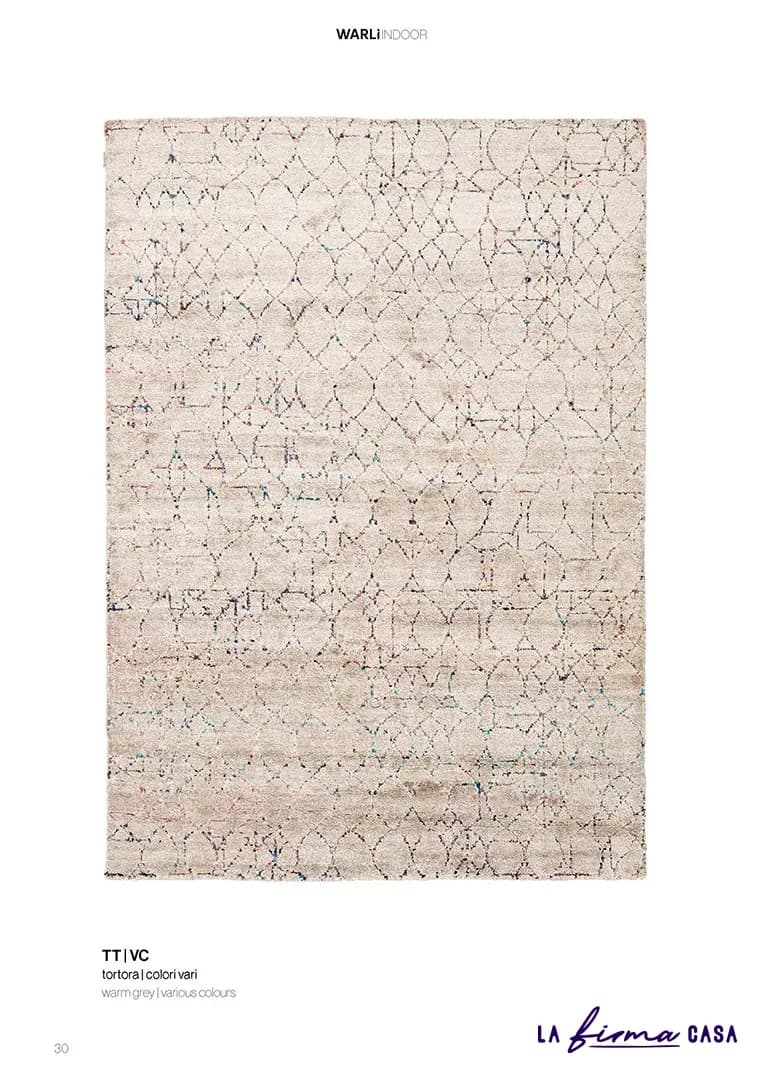 WARLiINDOOR
TT|VC
tortora|colori vari
warm grey|various colours
30
LA firma CASA